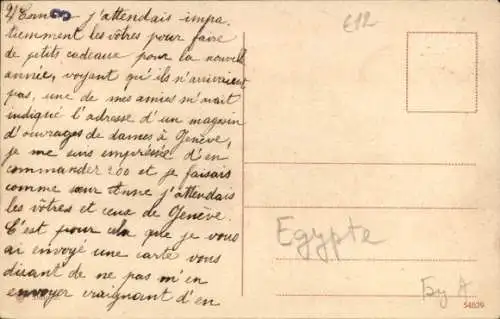 j'attendais impa-
tiemment les vôtres pour faire
de petits cadeaux pour la nouvelle
année, voyant qu'ils n'arrivaient
pas, une de mes amies m'avait
indiqué l'adresse d'un magasin
d'ouvrages de dames à Genève,
je me suis empressée d'en
commander 200 et je faisais
comme sœur Anne j'attendais
les vôtres et ceux de Genève.
C'est pour cela que je vous
ai envoyé une carte vous
disant de ne pas m'en
envoyer craignant d'en
E12
Egypte
Бу A
54839